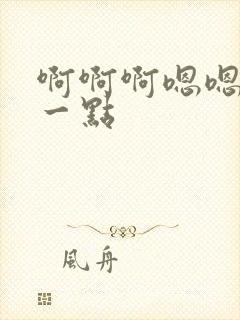 啊啊啊嗯嗯
一點
風舟